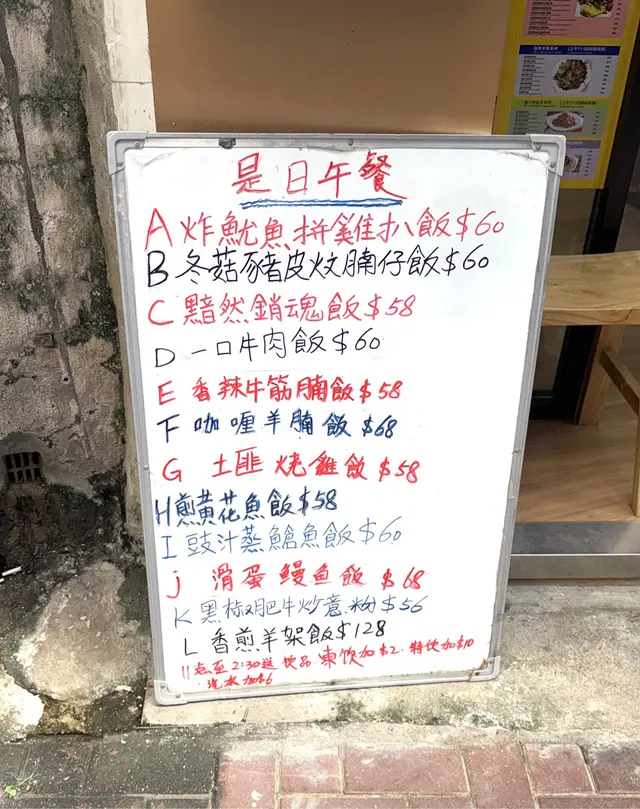 是日午餐
A 炸魷魚拼雞扒飯$60
B 冬菇豬皮炆腩仔飯$60
C 黯然銷魂飯$58
D 一口牛肉飯$60
E 香辣牛筋腩飯$58
F 咖喱羊腩飯 $68
G 土匪燒雞飯 $58
H 煎黃花魚飯$58
I 豉汁蒸鱠魚飯$60
j 滑蛋鳗鱼飯 $68
K 黑椒肥牛炒意粉$56
L 香煎羊架飯$128
11点至2:30送饮品.凍饮加$2.特饮加$10
汽水加$6